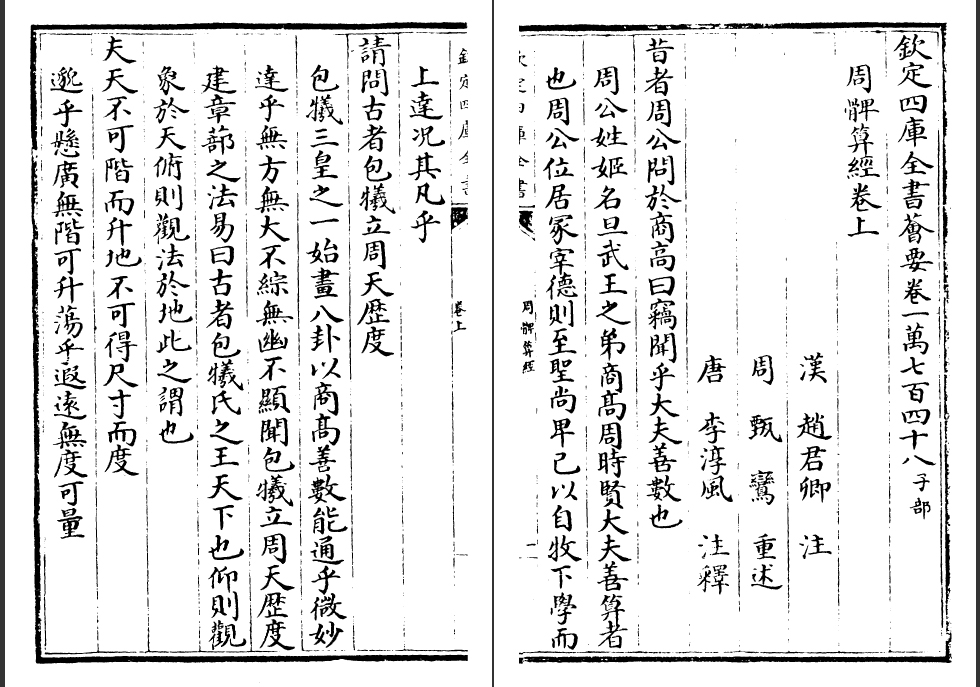 欽定四庫全書薈要卷一萬七百四十八子部
周髀算經卷上
漢 趙君卿 注
周 甄鸞 重述
唐 李淳風 注釋
昔者周公問於商高曰竊聞乎大夫善數也
周公姓姬名旦武王之弟商髙周時賢大夫善算者
也周公位居冢宰德則至聖尚卑己以自牧下學而
欽定四庫全書
周髀算經
卷上
一
上達况其凡乎
請問古者包犧立周天歴度
包犧三皇之一始畫八卦以商髙善數能通乎微妙
達乎無方無大不綜無幽不顯聞包犧立周天歴度
建章蔀之法易曰古者包犧氏之王天下也仰則觀
象於天俯則觀法於地此之謂也
夫天不可階而升地不可得尺寸而度
邈乎懸廣無階可升蕩乎遐遠無度可量